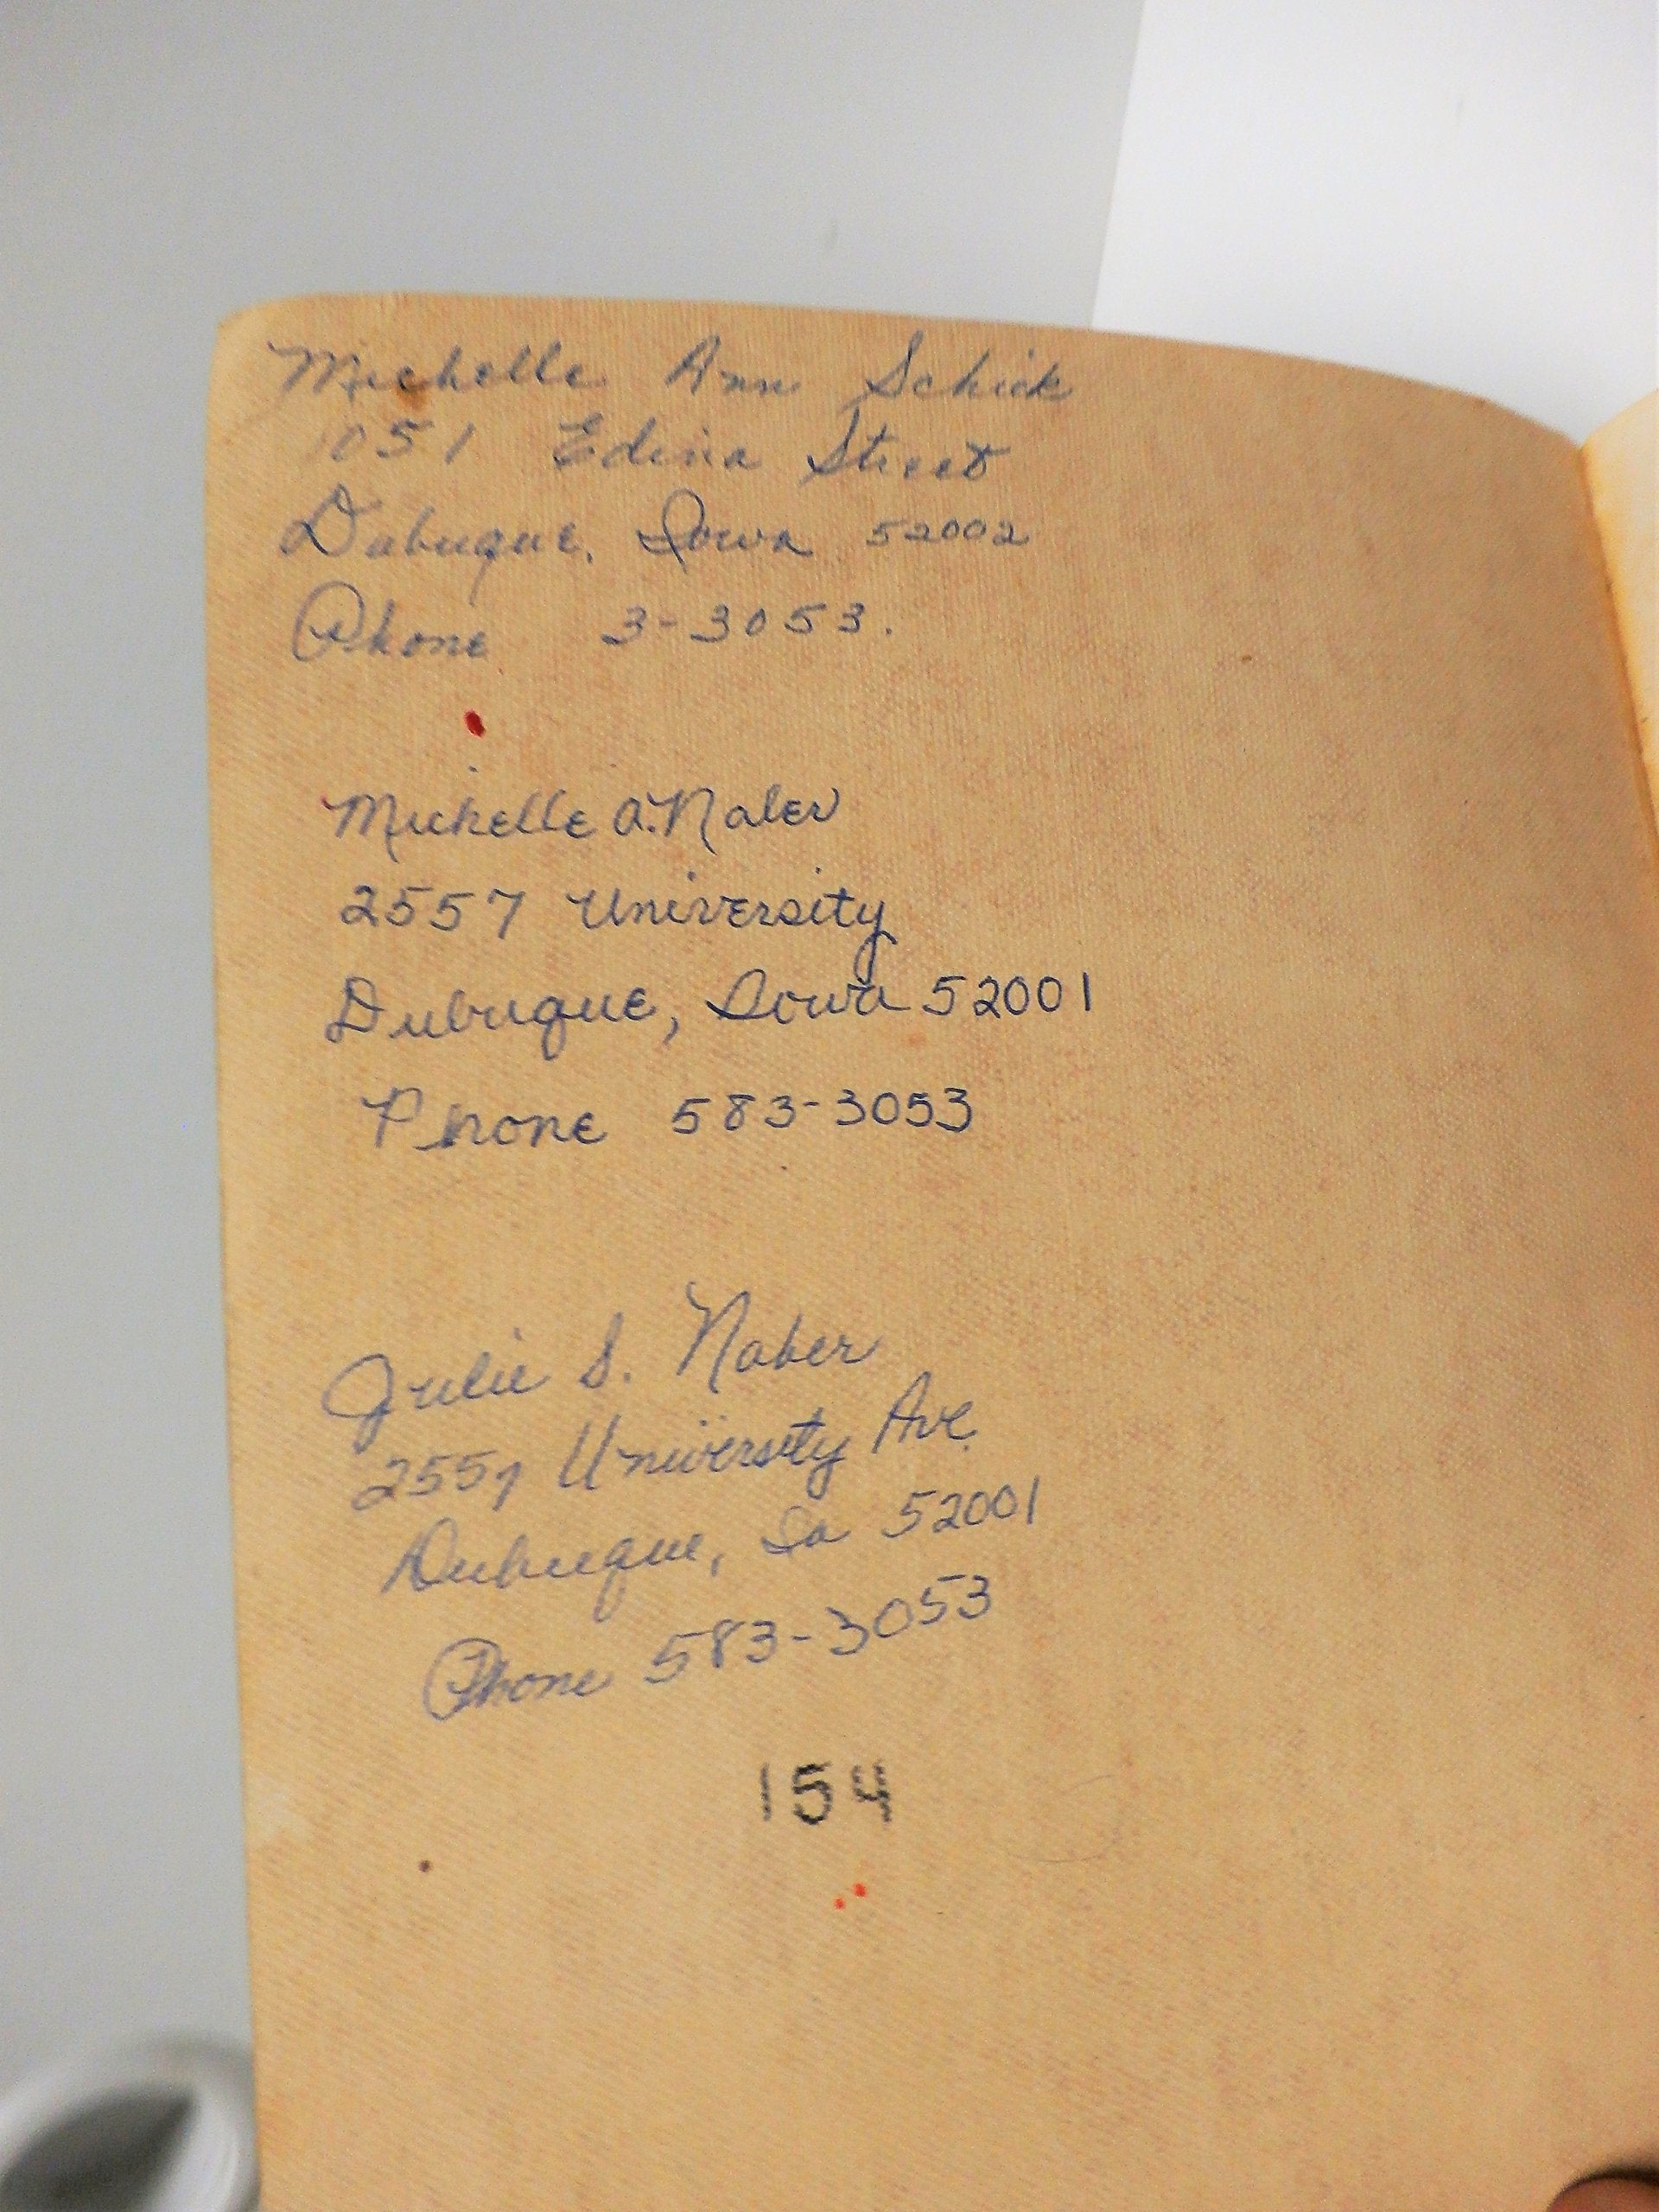 Michelle Ann Schick
1051 Edina Street
Dubuque, Iowa 52002
Phone 3-3053.
Michelle A. Naber
2557 University
Dubuque, Iowa 52001
Phone 583-3053
Julie S. Naber
2557 University Ave.
Dubuque, Ia 52001
Phone 583-3053
154